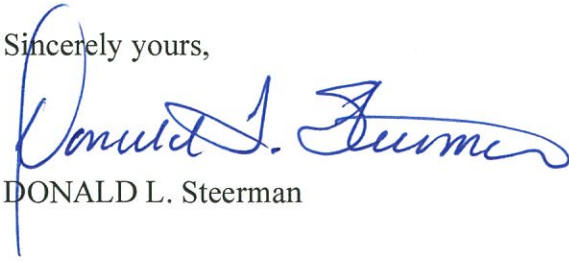 Sincerely yours,
Donald L. Steerman
DONALD L. Steerman